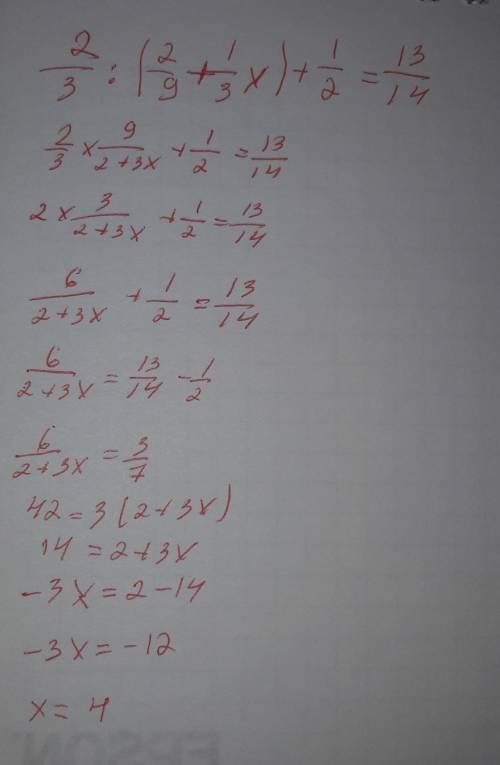 2/3 : (2/9 + 1/3 x) + 1/2 = 13/14
2/3 x 9/2+3x + 1/2 = 13/14
2 x 3/2+3x + 1/2 = 13/14
6/2+3x + 1/2 = 13/14
6/2+3x = 13/14 - 1/2
6/2+3x = 3/7
42 = 3(2+3x)
14 = 2+3x
-3x = 2-14
-3x = -12
x = 4
EPSON